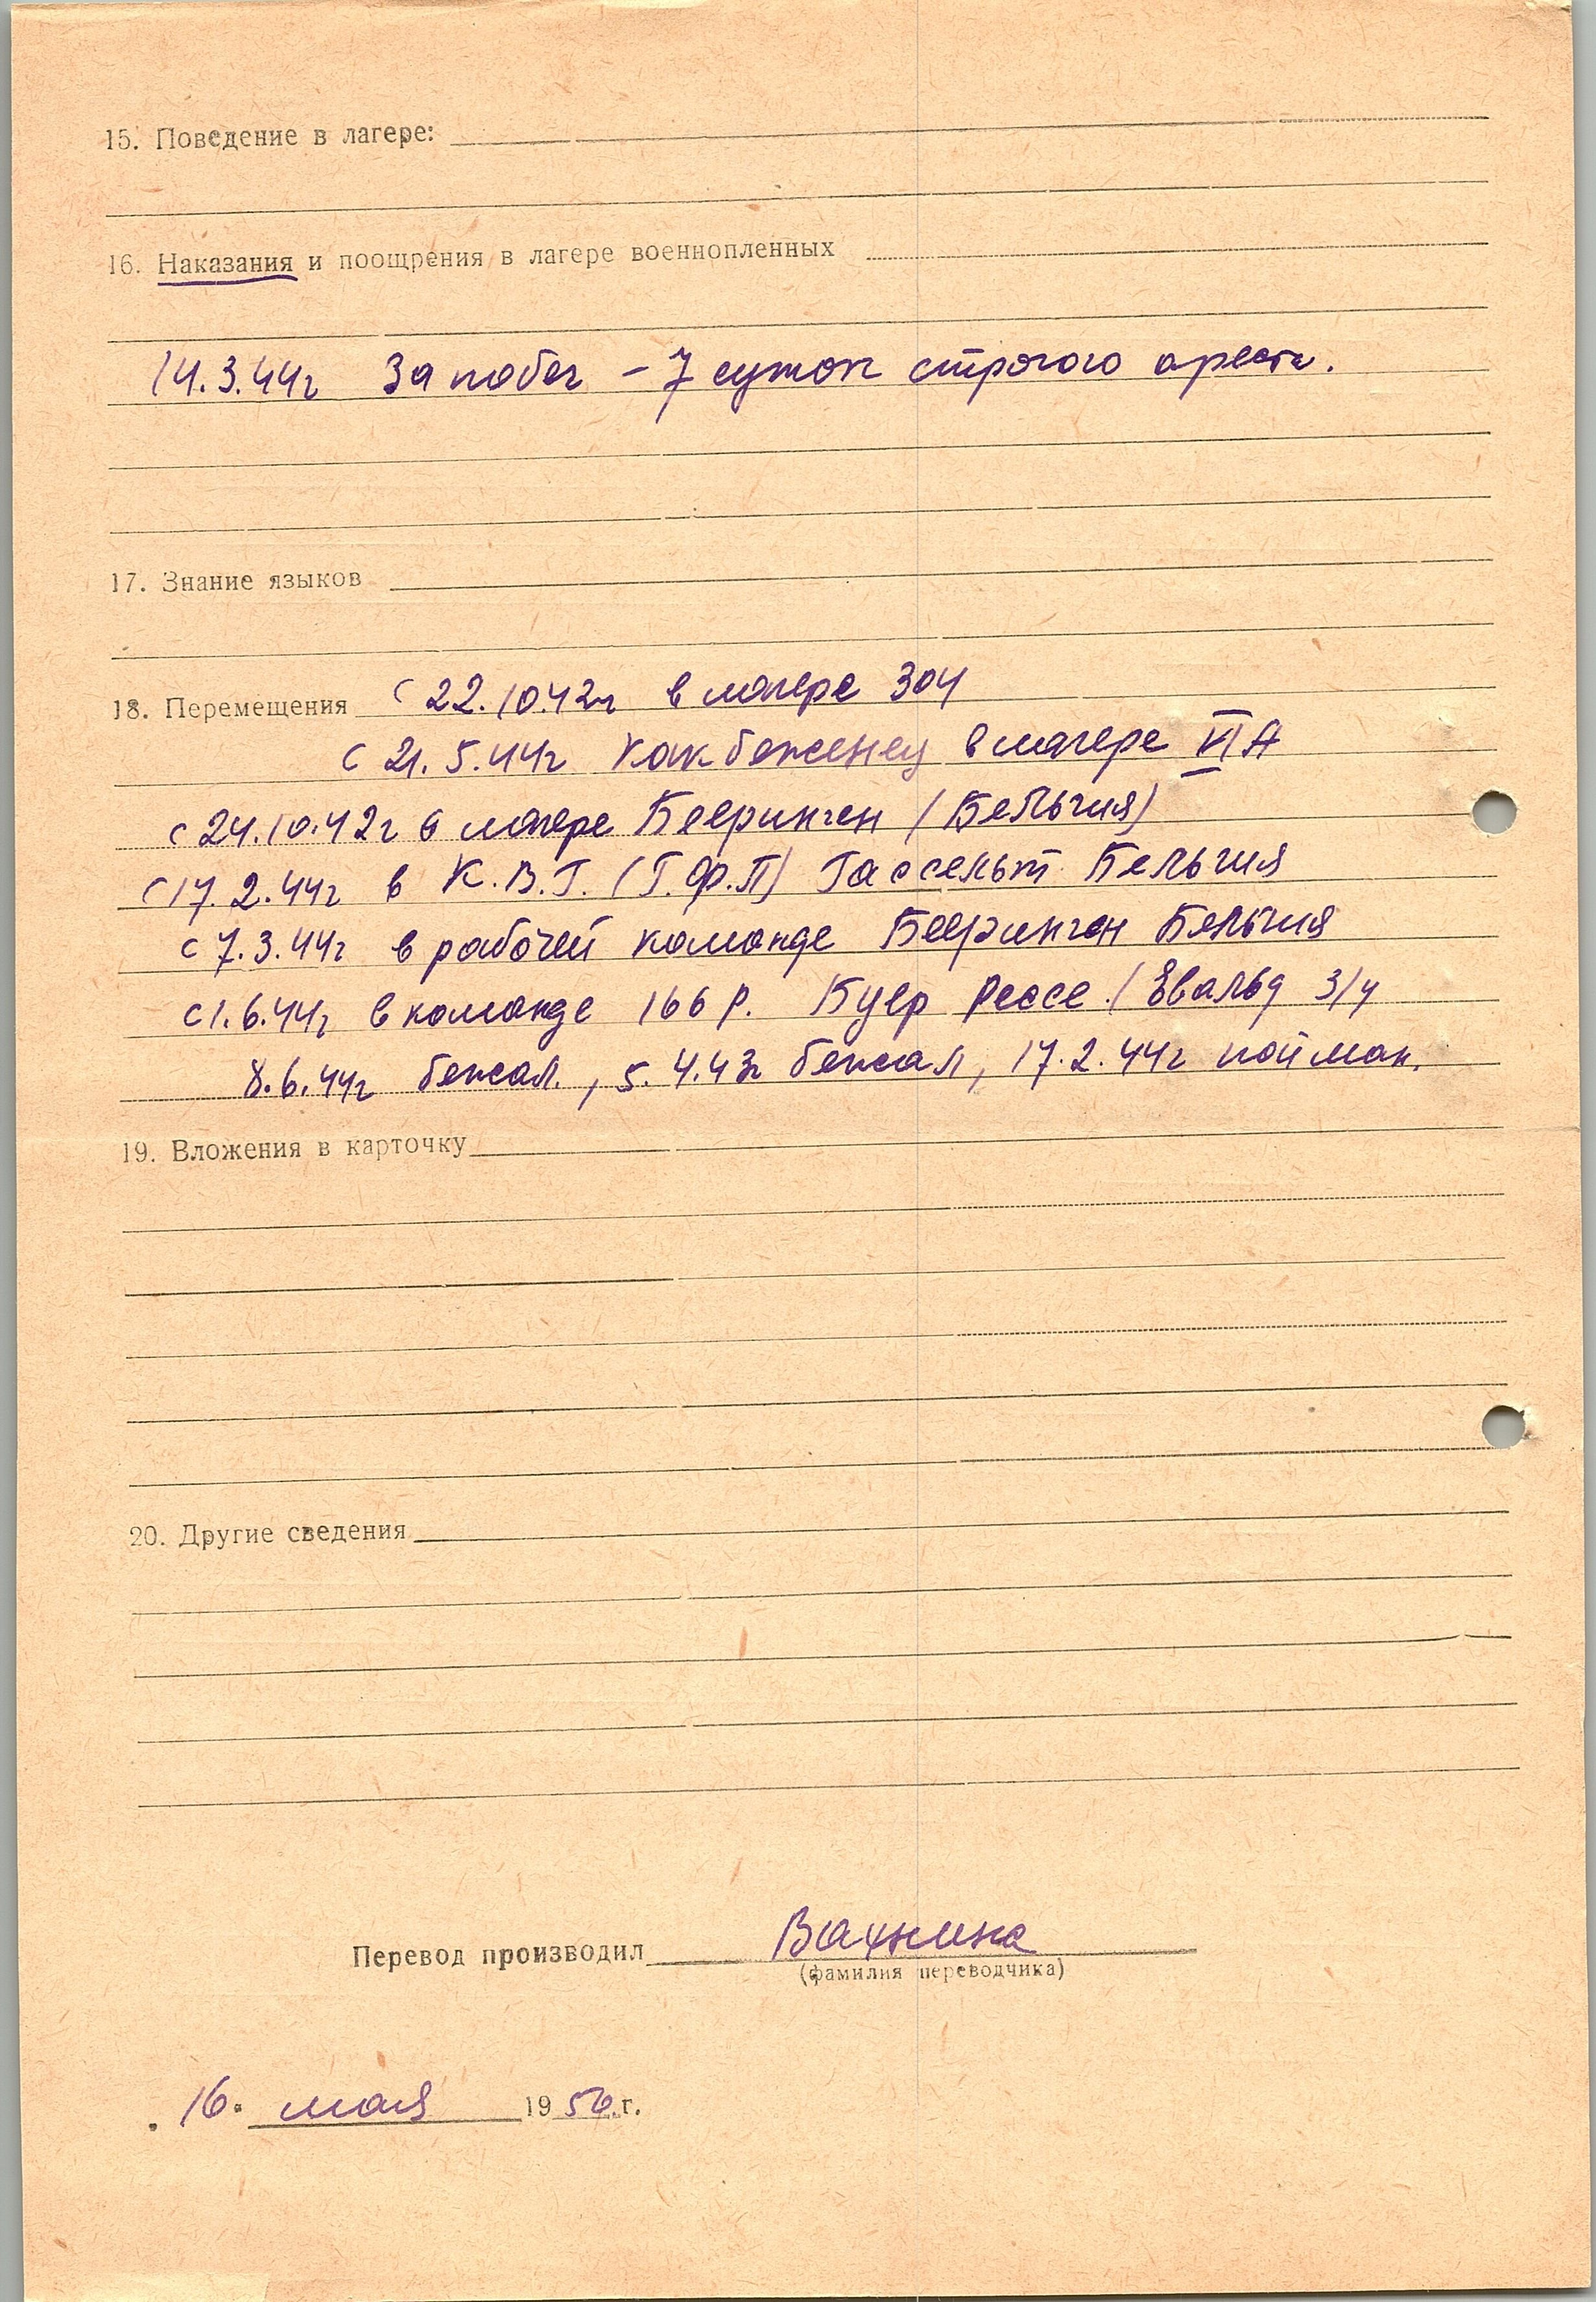 15. Поведение в лагере:
16. Наказания и поощрения в лагере военнопленных
14.3.44г За побег – 7 суток строгого ареста.
17. Знание языков
18. Перемещения с 22.10.42г в лагере 304
с 21.5.44г как беженец в лагере VI А
с 24.10.42г в лагере Бееринген (Бельгия)
с 17.2.44г в К.В.Г. (Г.Ф.П) Гассельт Бельгия
с 7.3.44г в рабочей команде Бееринген Бельгия
с 1.6.44г в команде 166 Р. Буер Рессе (Эвальд 3/4
8.6.44г бежал, 5.4.43г бежал, 17.2.44г пойман.
19. Вложения в карточку
20. Другие сведения
Перевод производил Вахнина
(фамилия переводчика)
„ 16 " мая 1956 г.